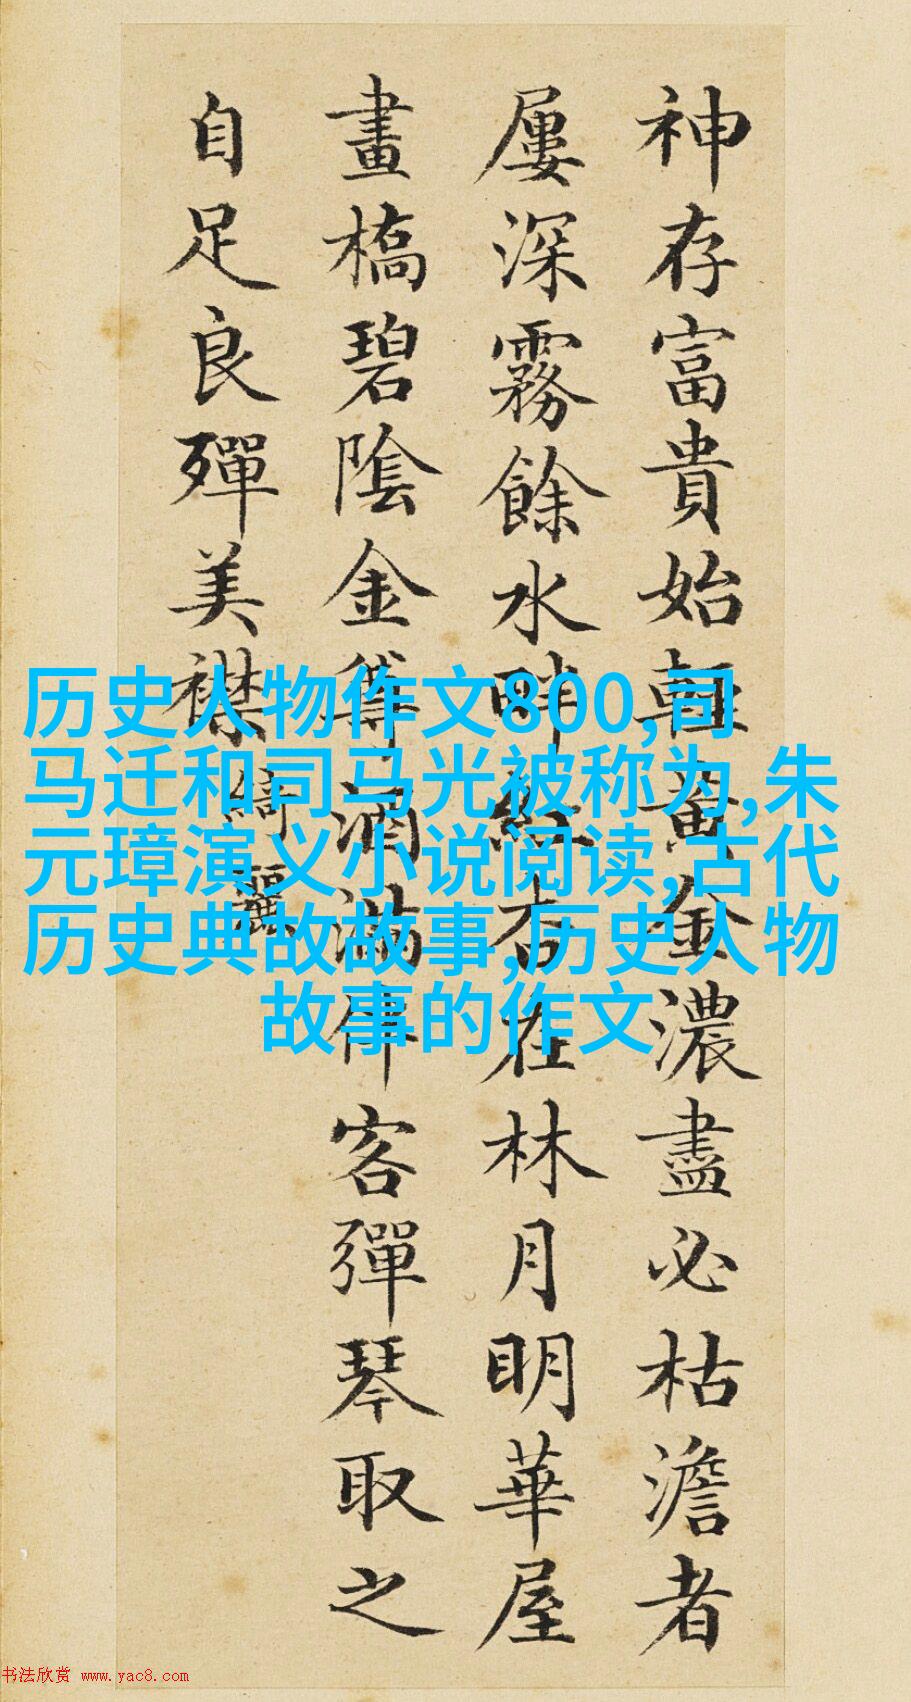 神存富貴始輕黃金濃盡必枯澹者
屢深霧餘水畔紅杏在林月明華屋
畫橋碧陰金尊酒滿伴客彈琴取之
自足良殫美襟
綺麗
历史人物作文800,司
马迁和司马光被称为,朱
元璋演义小说阅读,古代
历史典故故事,历史人物
故事的作文
书法欣赏 www.yac8.com